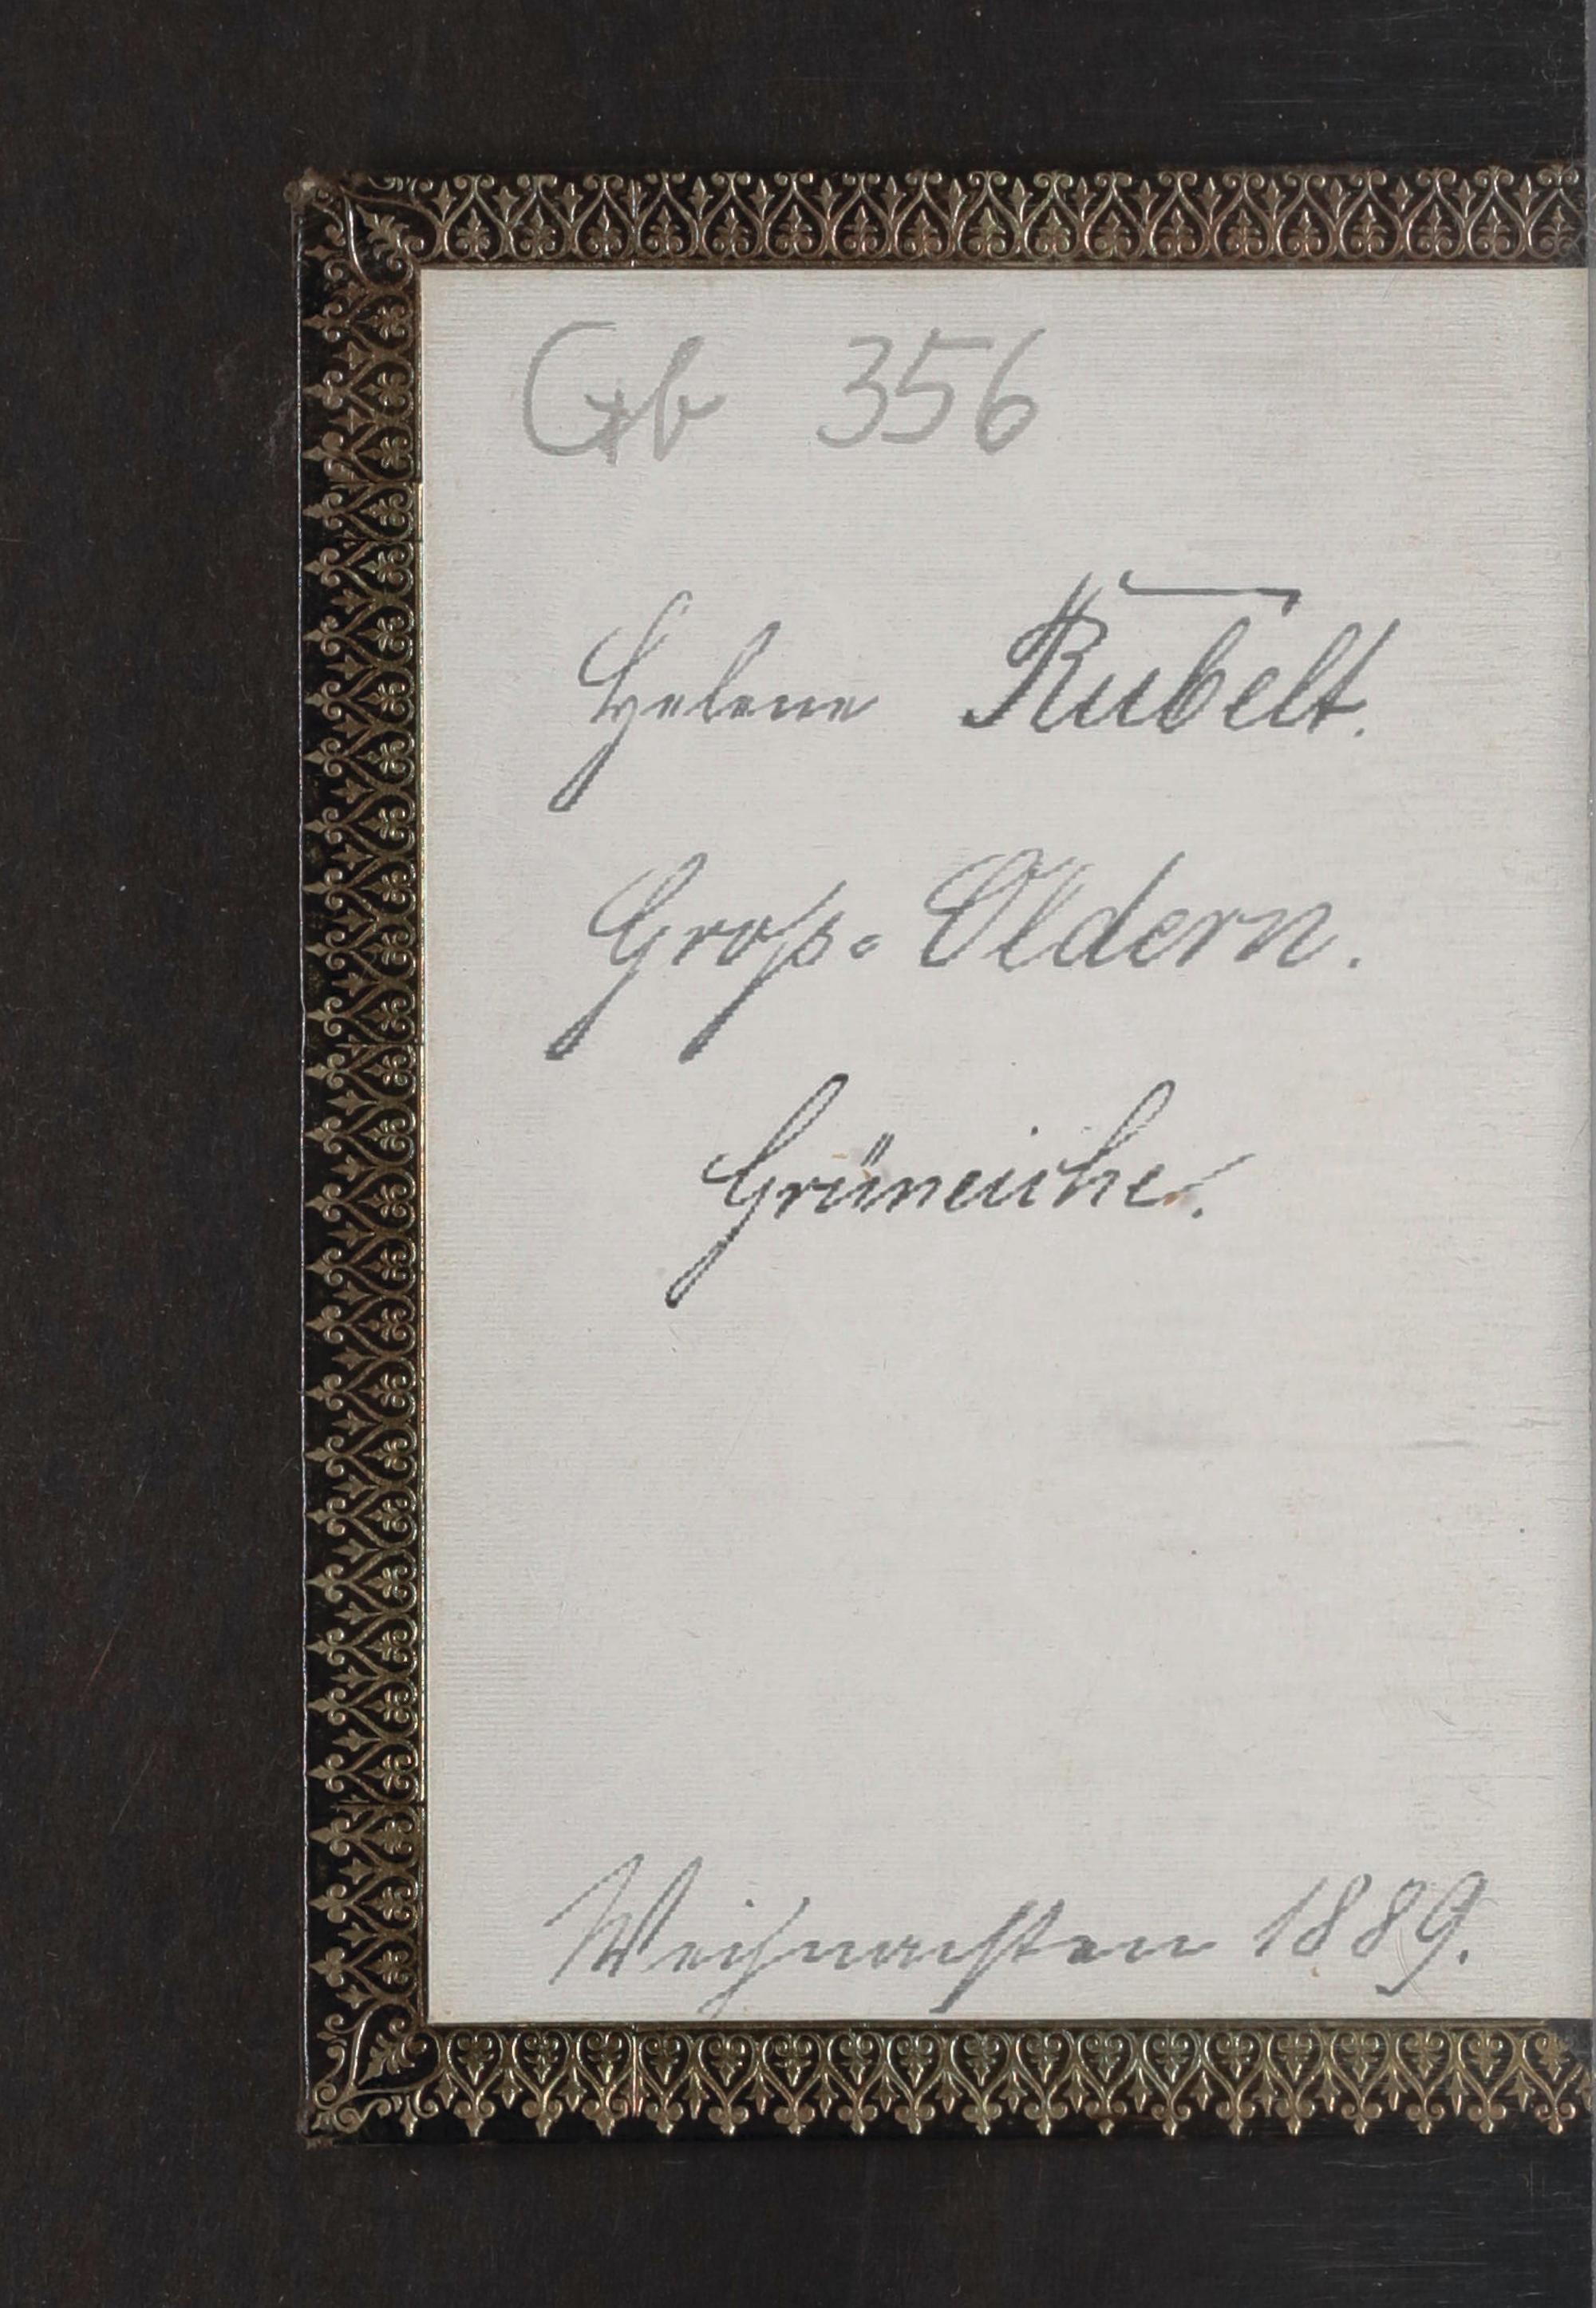 Gb 356
Helene Rübelt.
Groß-Oldern.
Grüneiche.
Weihnachten 1889.